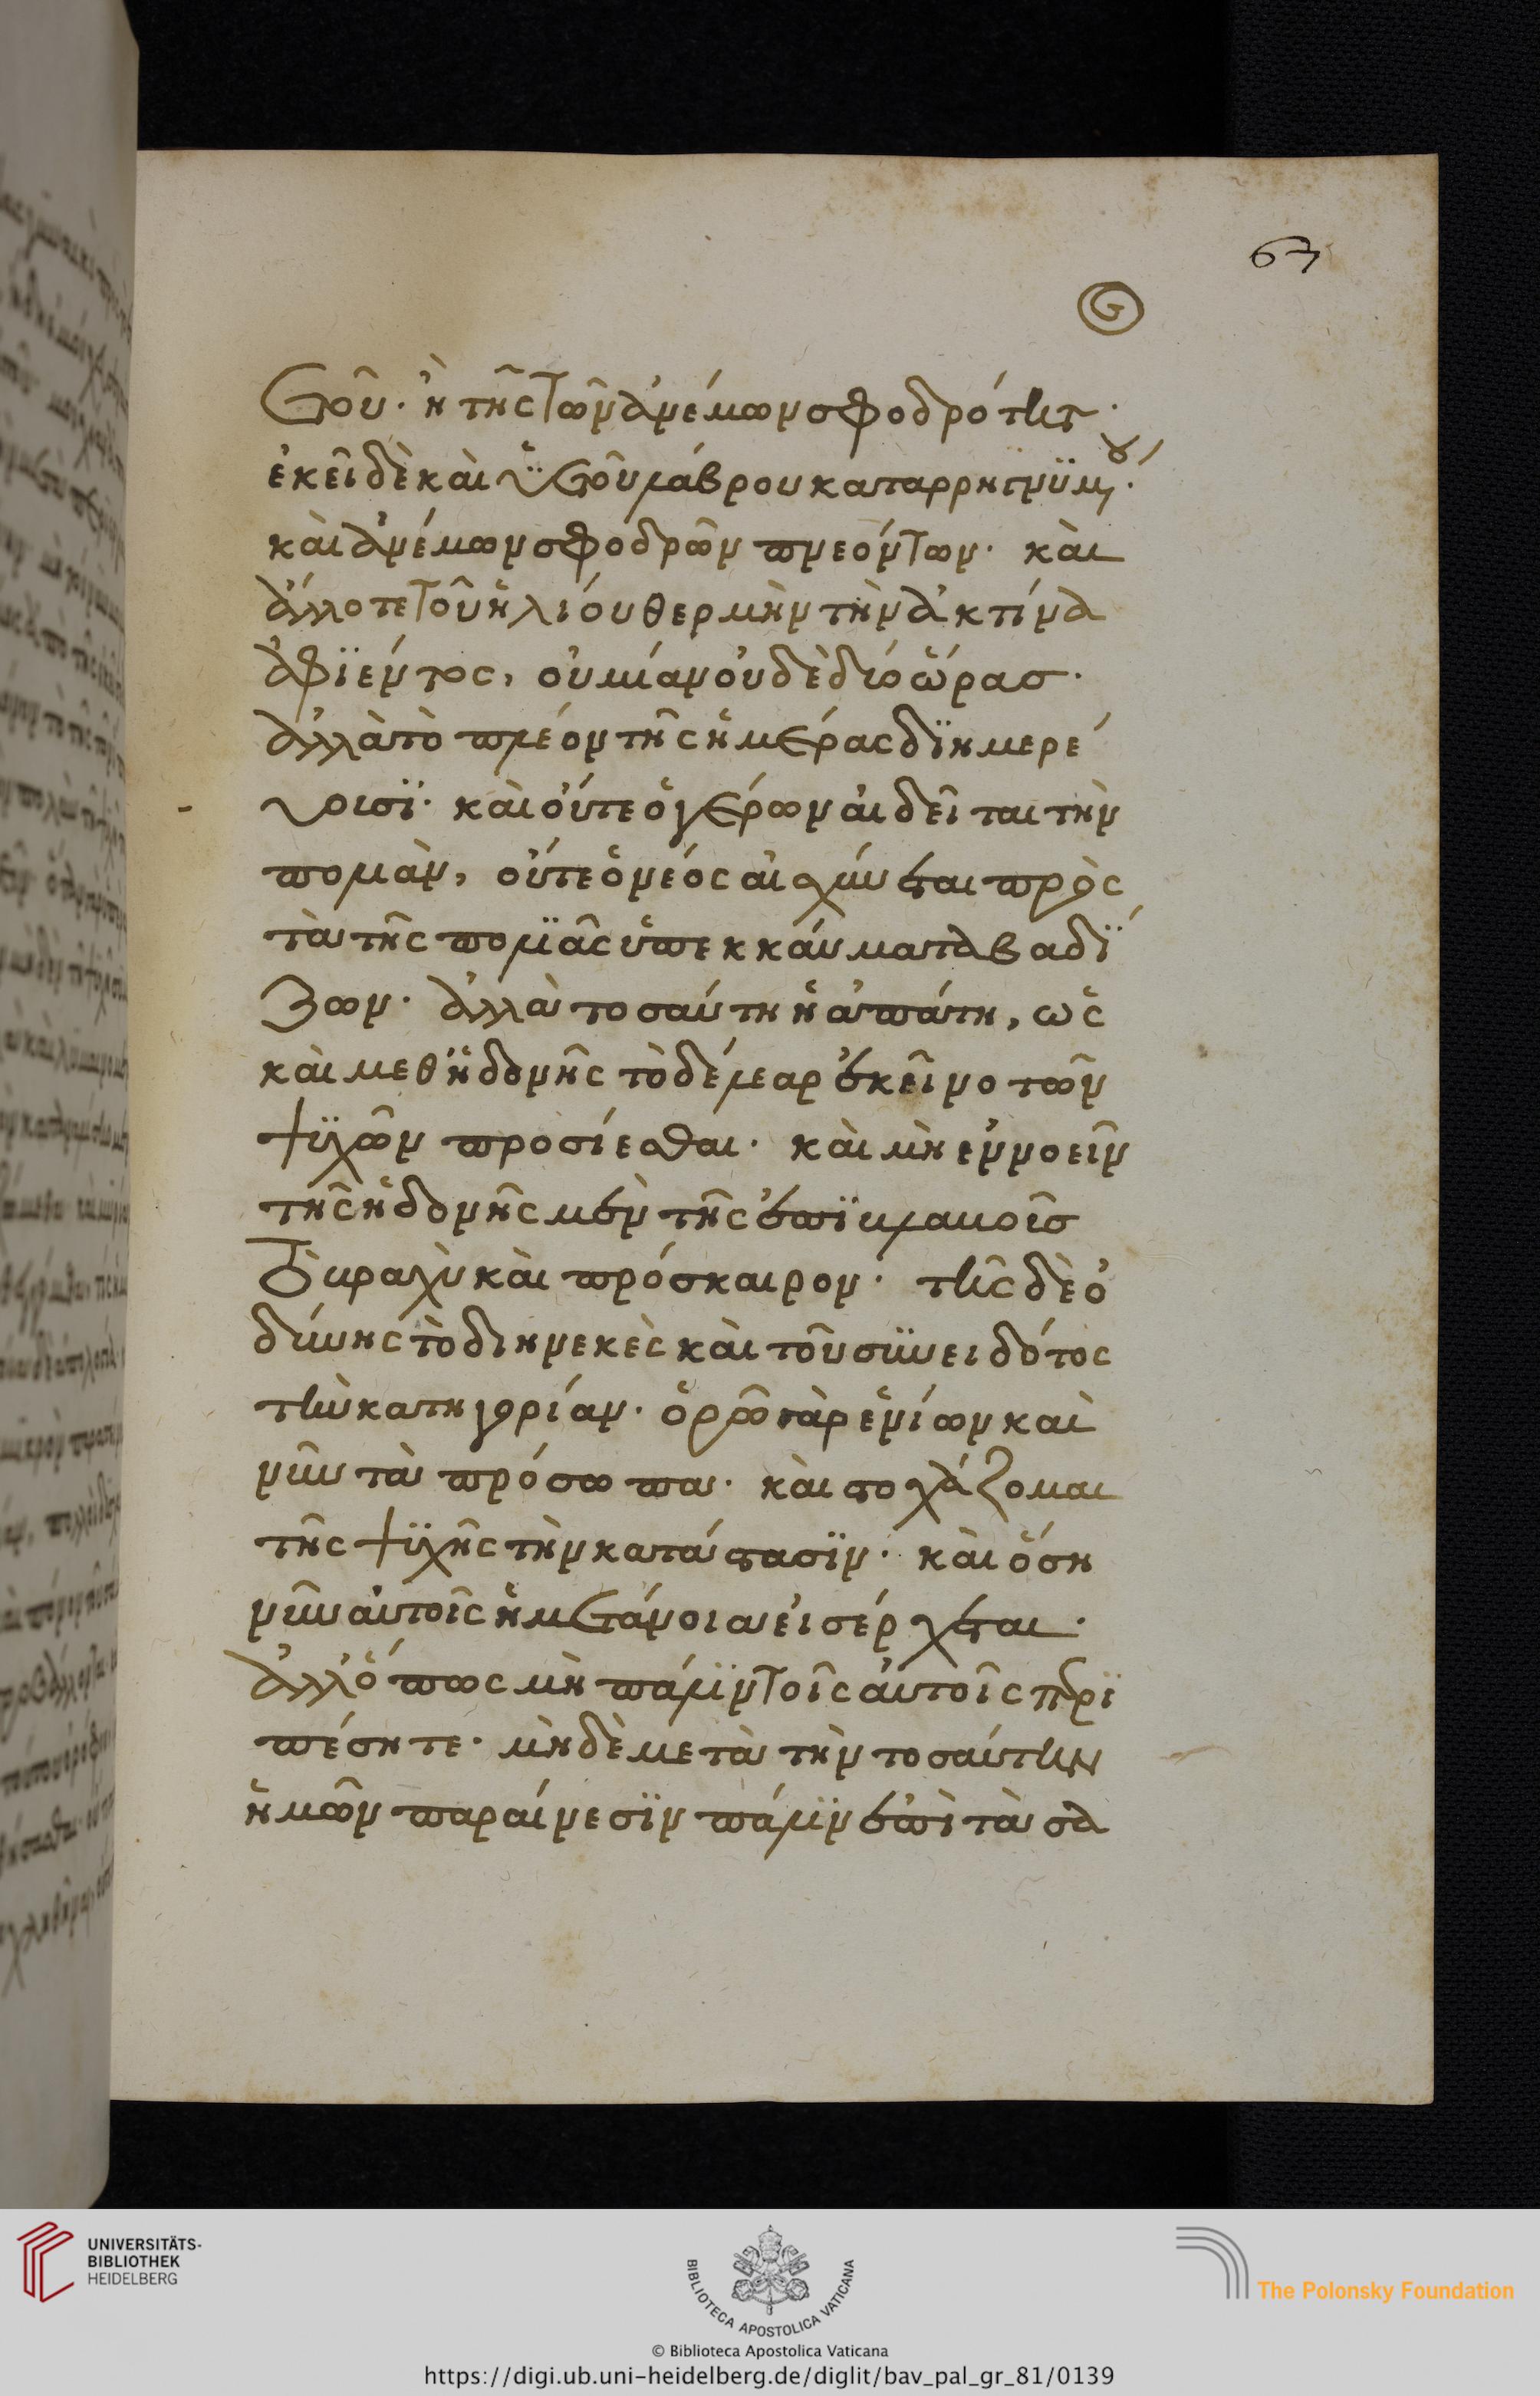 67
ς
ετοῦ· ἢ τῆς τῶν ἀνέμων σφοδρότητ·
ἐκεῖ δὲ καὶ ὑετοῦ λάβρου καταρρηγνυμένου·
καὶ ἀνέμων σφοδρῶν πνεόντων· καὶ
ἄλλοτε τοῦ ἡλίου θερμὴν τὴν ἀκτίνα
ἀφϊέντος, οὐ μίαν οὐδὲ δύο ὥρας·
ἀλλὰ τὸ πλέον τῆς ἡμέρας δϊημερεύ
ουσϊ· καὶ οὔτε ὁ γέρων αἰδεῖται τὴν
πολιὰν, οὔτε ὁ νέος αἰσχύνεται πρὸς
τὰ τῆς πολϊᾶς ὑπεκκαύματα βαδΐ
ζων· ἀλλὰ τοσαύτη ἡ ἀπάτη, ὡς
καὶ μεθ' ἡδονῆς τὸ δέλεαρ ἐκεῖνο τῶν
ψϋχῶν προσίεσθαι· καὶ μὴ ἐννοεῖν
τῆς ἡδονῆς μὲν τῆς ἐπϊβλαβοῖς
τὸ βραχὺ καὶ πρόσκαιρον· τῆς δὲ ὀ
δύνης τὸ διηνεκὲς καὶ τοῦ συνειδότος
τὴν κατηγορίαν· ὁρῶ γὰρ ἐνίων καὶ
νῦν τὰ πρόσωπα· καὶ στοχάζομαι
τῆς ψϋχῆς τὴν κατάστασϊν· καὶ ὅση
νῦν αὐτοῖς ἡ μετάνοια εἰσέρχεται·
ἀλλ' ὅπως μὴ πάλϊν τοῖς αὐτοῖς περϊ
πέσητε· μὴ δὲ μετὰ τὴν τοσαύτην
ἡμῶν παραίνεσϊν πάλϊν ἐπὶ τὰ σα
UNIVERSITÄTS-
BIBLIOTHEK
HEIDELBERG
BIBLIOTECA APOSTOLICA VATICANA
The Polonsky Foundation
© Biblioteca Apostolica Vaticana
https://digi.ub.uni-heidelberg.de/diglit/bav_pal_gr_81/0139